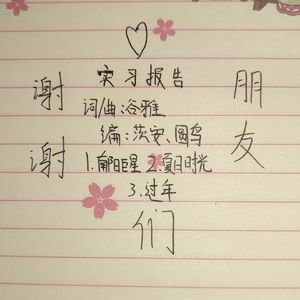 谢谢
朋友
们
实习报告
词/曲:谷雅
编:茨安、圆鸟
1.启明星 2.夏日时光
3.过年